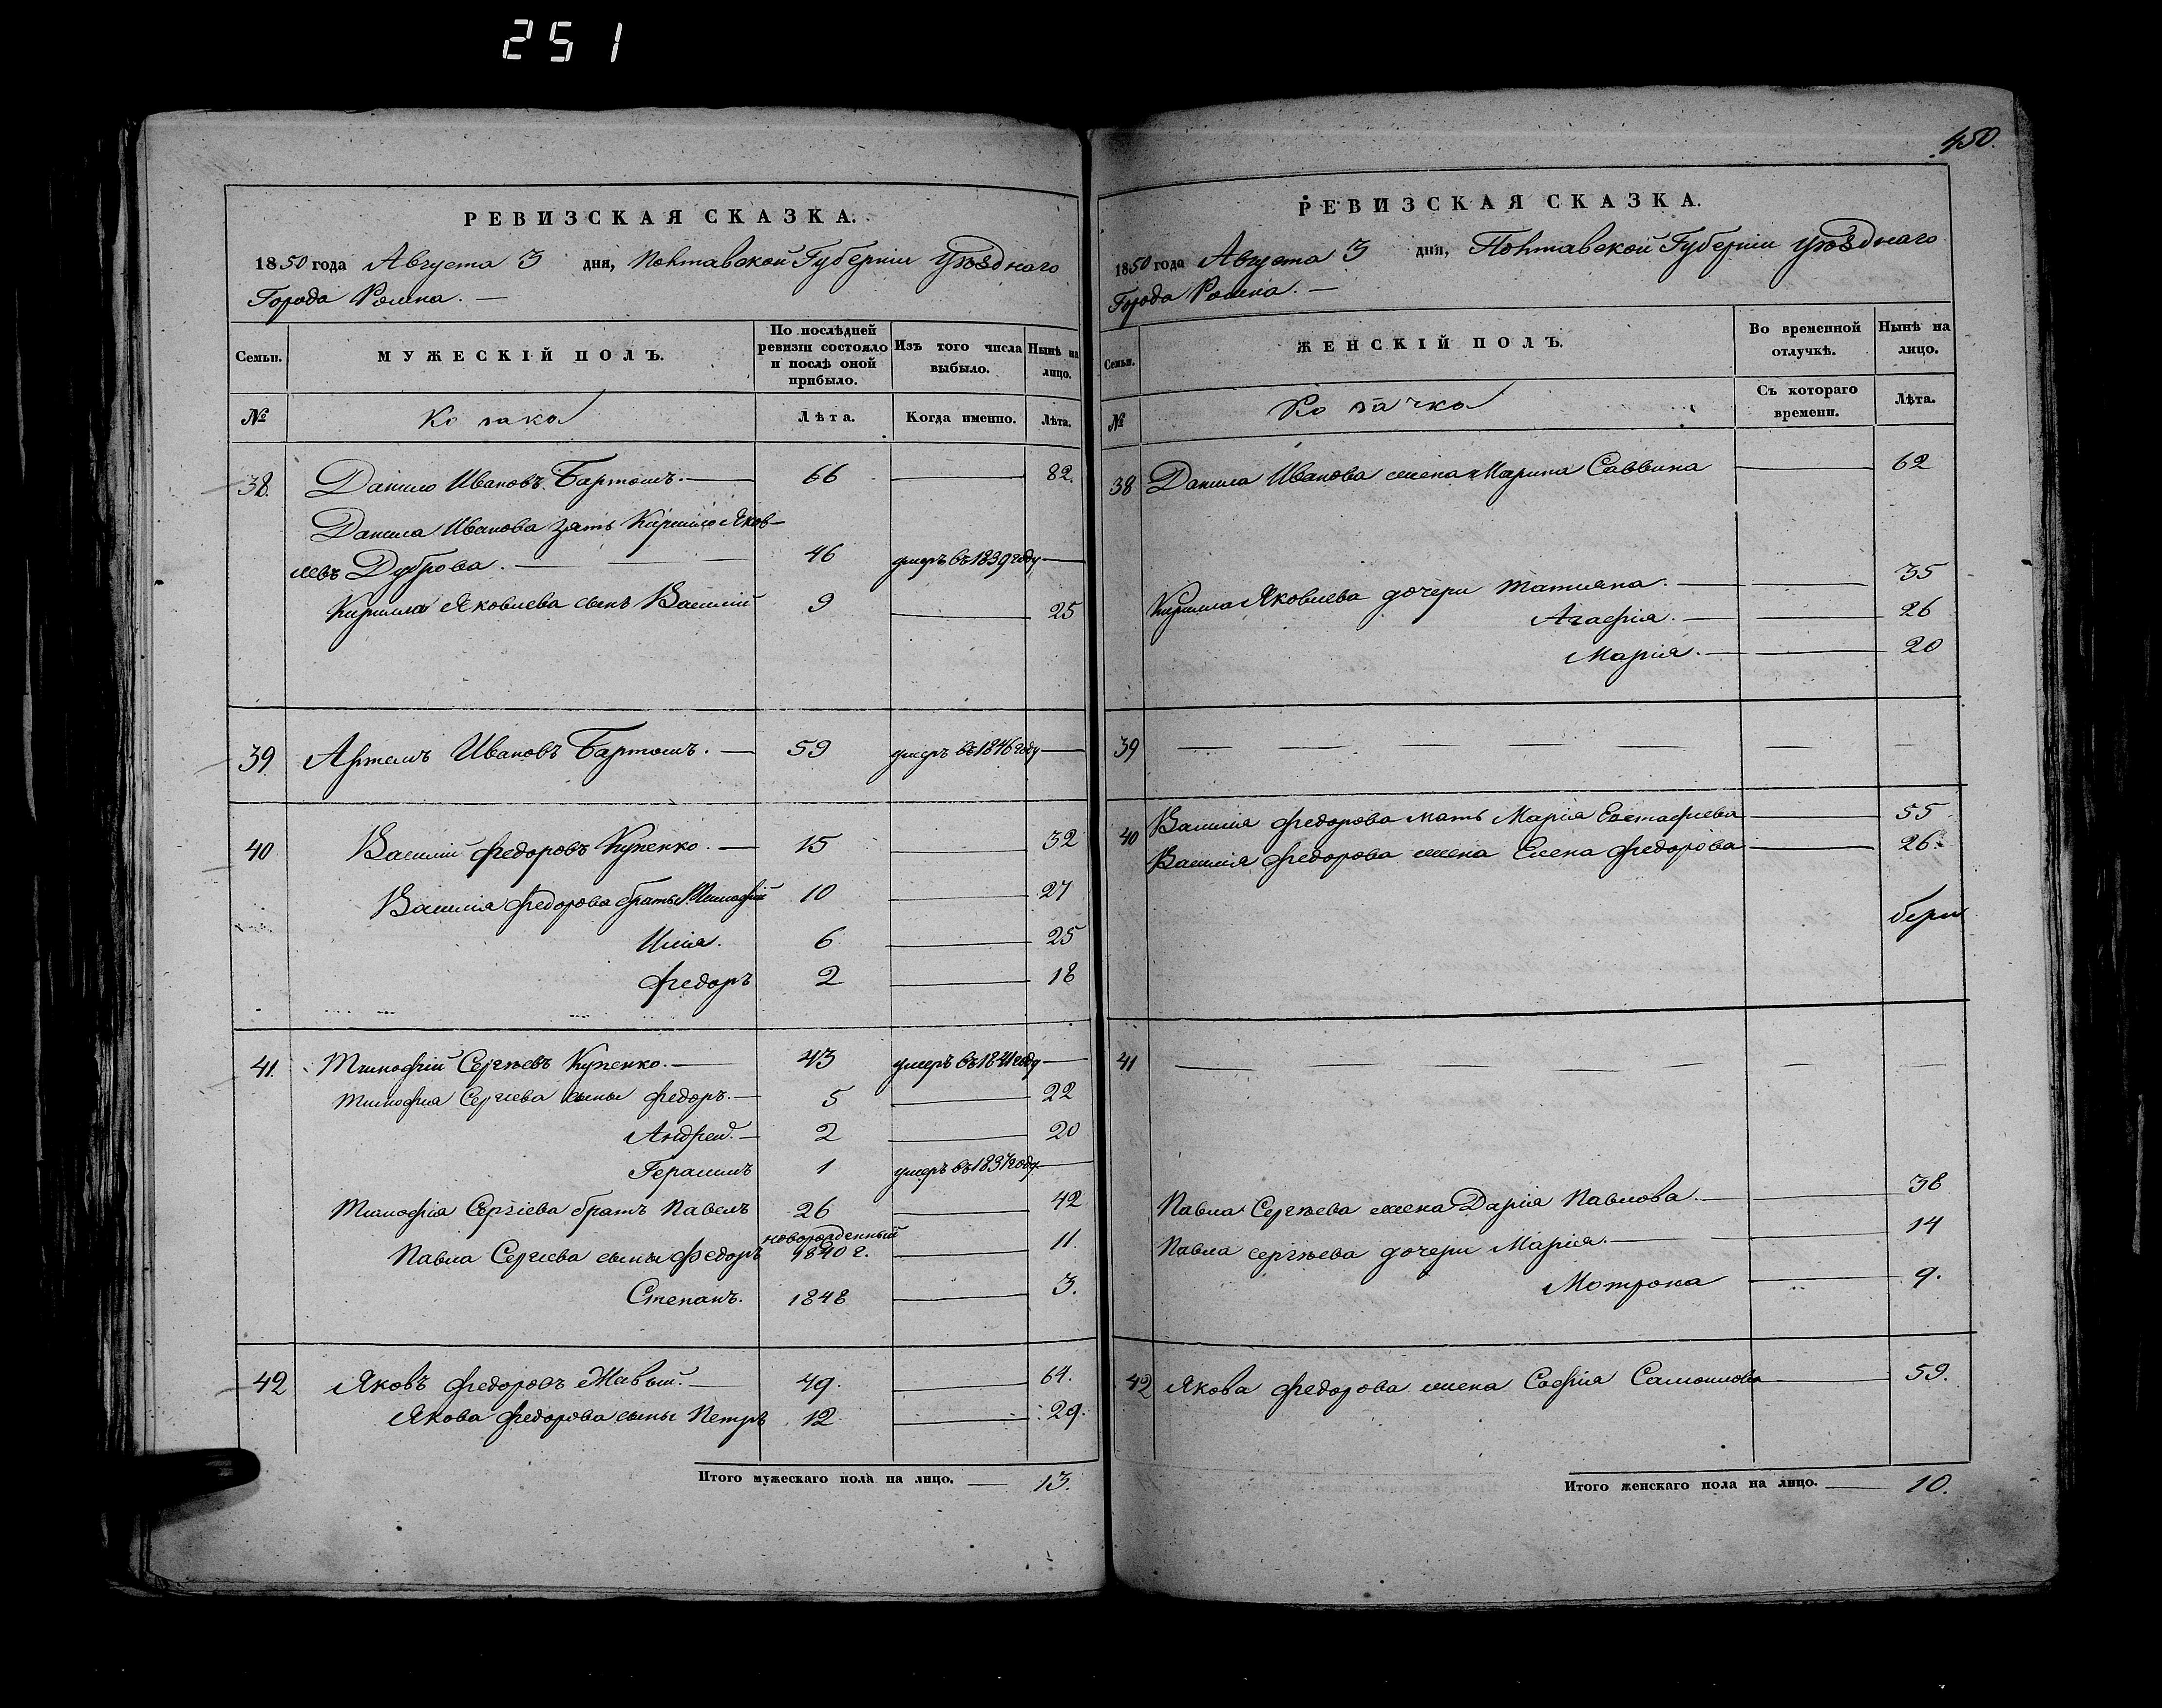 251
450.
РЕВИЗСКАЯ СКАЗКА.
1850 года Августа 3 дня, Полтавской Губерніи уѣзднаго
Города Ромна. —
Семьи. МУЖЕСКІЙ ПОЛЪ. По послѣдней ревизіи состояло и послѣ оной прибыло. Изъ того числа выбыло. Нынѣ на лицо.
№ Козака Лѣта. Когда именно. Лѣта.
38. Данило Ивановъ Бартошъ. — 66 — 82.
Данила Иванова зять Кирилло Яков-
левъ Дуброва. — 46 умеръ въ 1839 году —
Кирилла Яковлева сынъ Василій 9 — 25
39 Артемъ Ивановъ Бартошъ. — 59 умеръ въ 1846 году —
40 Василій Федоровъ — 15 — 32
Василія Федорова братья Тимофій 10 — 27
Илля. 6 — 25
Федоръ 2 — 18
41. Тимофій Сергѣевъ — 43 умеръ въ 1841 году —
Тимофія Сергіева сыны Федоръ. — 5 — 22
Андрей. — 2 — 20
Герасимъ 1 умеръ въ 1837 году —
Тимофія Сергіева братъ Павелъ 26 — 42
новорожденный
Павла Сергіева сыны Федоръ 1840 г. — 11.
Степанъ. 1848 — 3.
42 Яковъ Федоровъ Живый. — 49. — 64.
Якова Федорова сыны Петръ 12 — 29.
Итого мужескаго пола на лицо. — 13.
РЕВИЗСКАЯ СКАЗКА.
1850 года Августа 3 дня, Полтавской Губерніи уѣзднаго
Города Ромна. —
Семьи. ЖЕНСКІЙ ПОЛЪ. Во временной отлучкѣ. Нынѣ на лицо.
№ Козачка Съ котораго времени. Лѣта.
38 Данила Иванова жена Марина Саввина — 62
Кирилла Яковлева дочери Татіяна. — 35
Агафія. — 26
Марія. — 20
39 — — — — — —
40 Василія Федорова мать Марія Евстафіева — 55
Василія Федорова жена Елена Федорова — 26.
41 — — — — — — —
Павла Сергѣева жена Дарія Павлова. — 38
Павла Сергѣева дочери Марія. — 14
Мотрона — 9.
42 Якова Федорова жена Софія Самоилова — 59.
Итого женскаго пола на лицо. — 10.